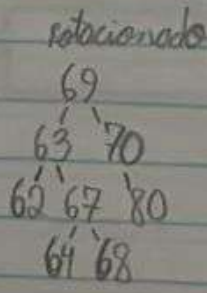 rotacionado
69
63 70
62 67 80
64 68